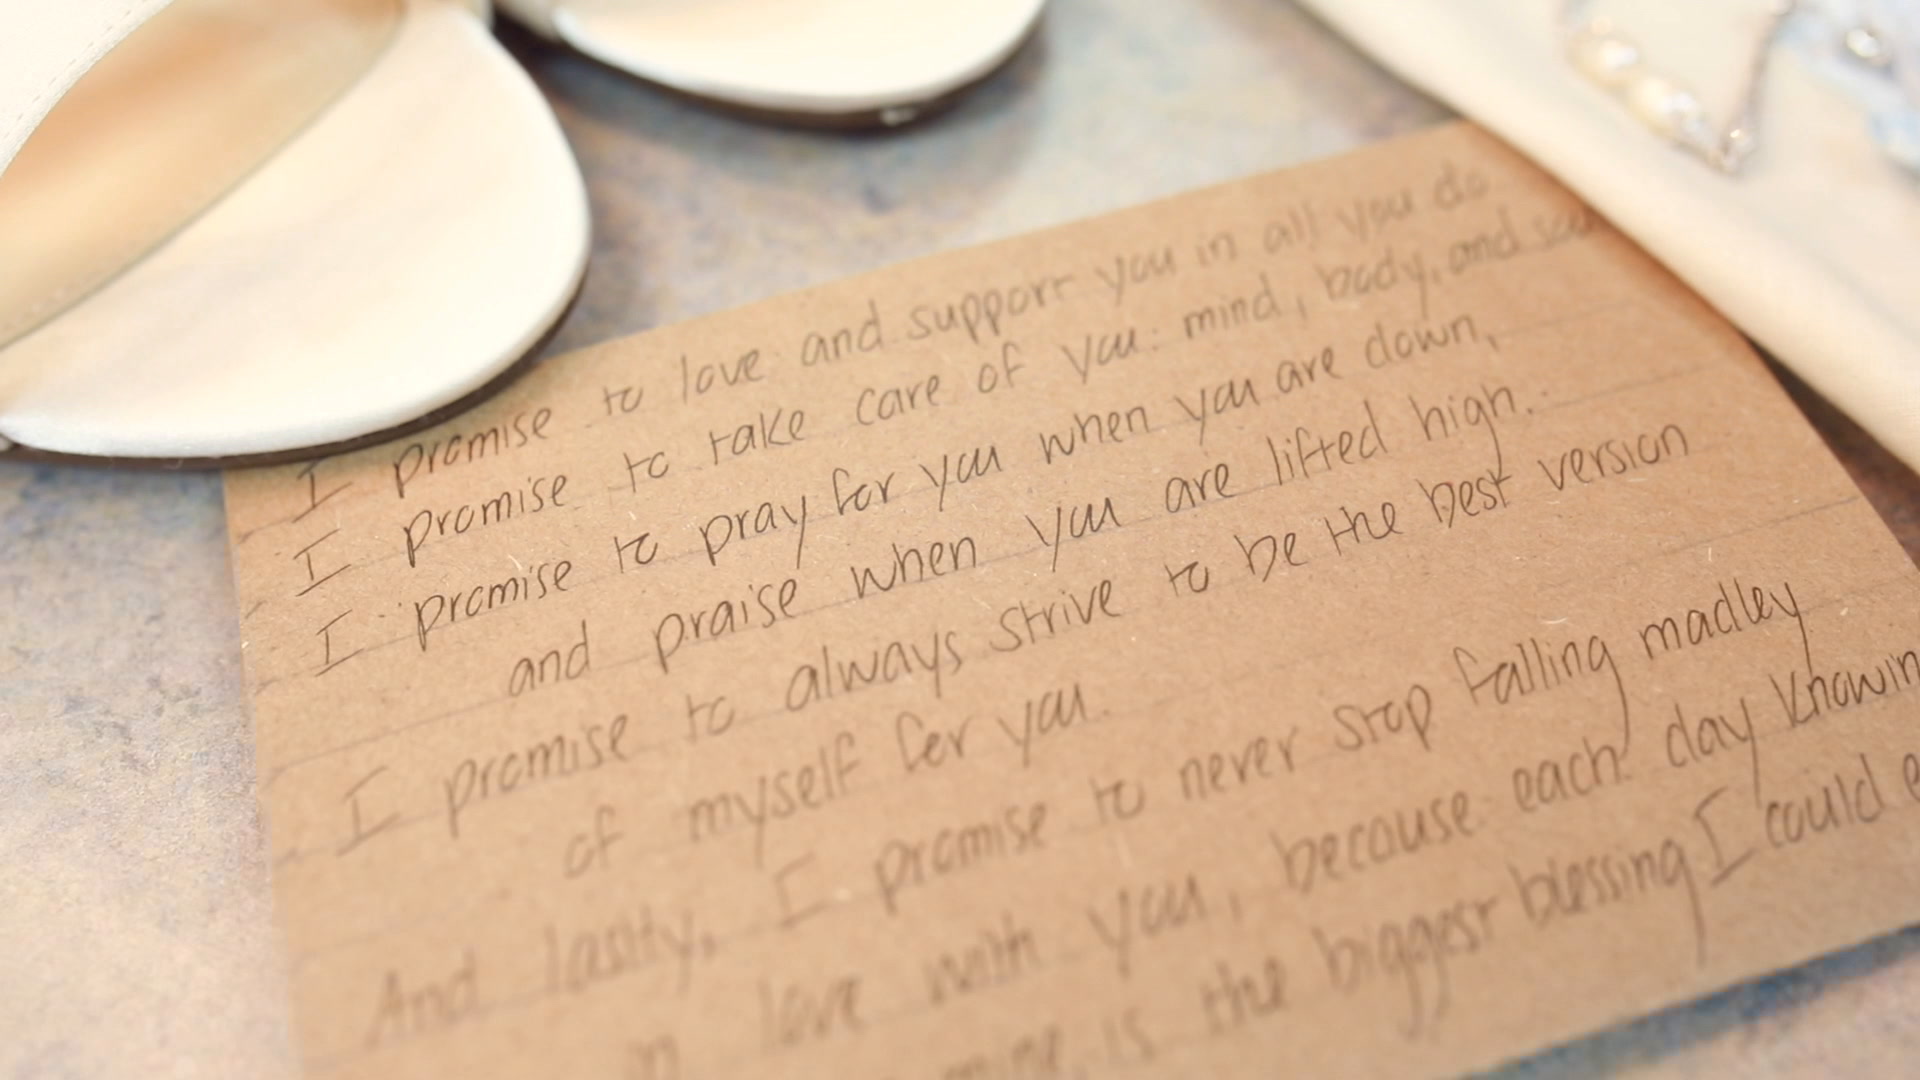 I promise to love and support you in all you do.
I promise to take care of you: mind, body, and
I promise to pray for you when you are down,
and praise when you are lifted high.
I promise to always strive to be the best version
of myself for you.
And lastly, I promise to never stop falling madley
in love with you, because each day
is the biggest blessing I could